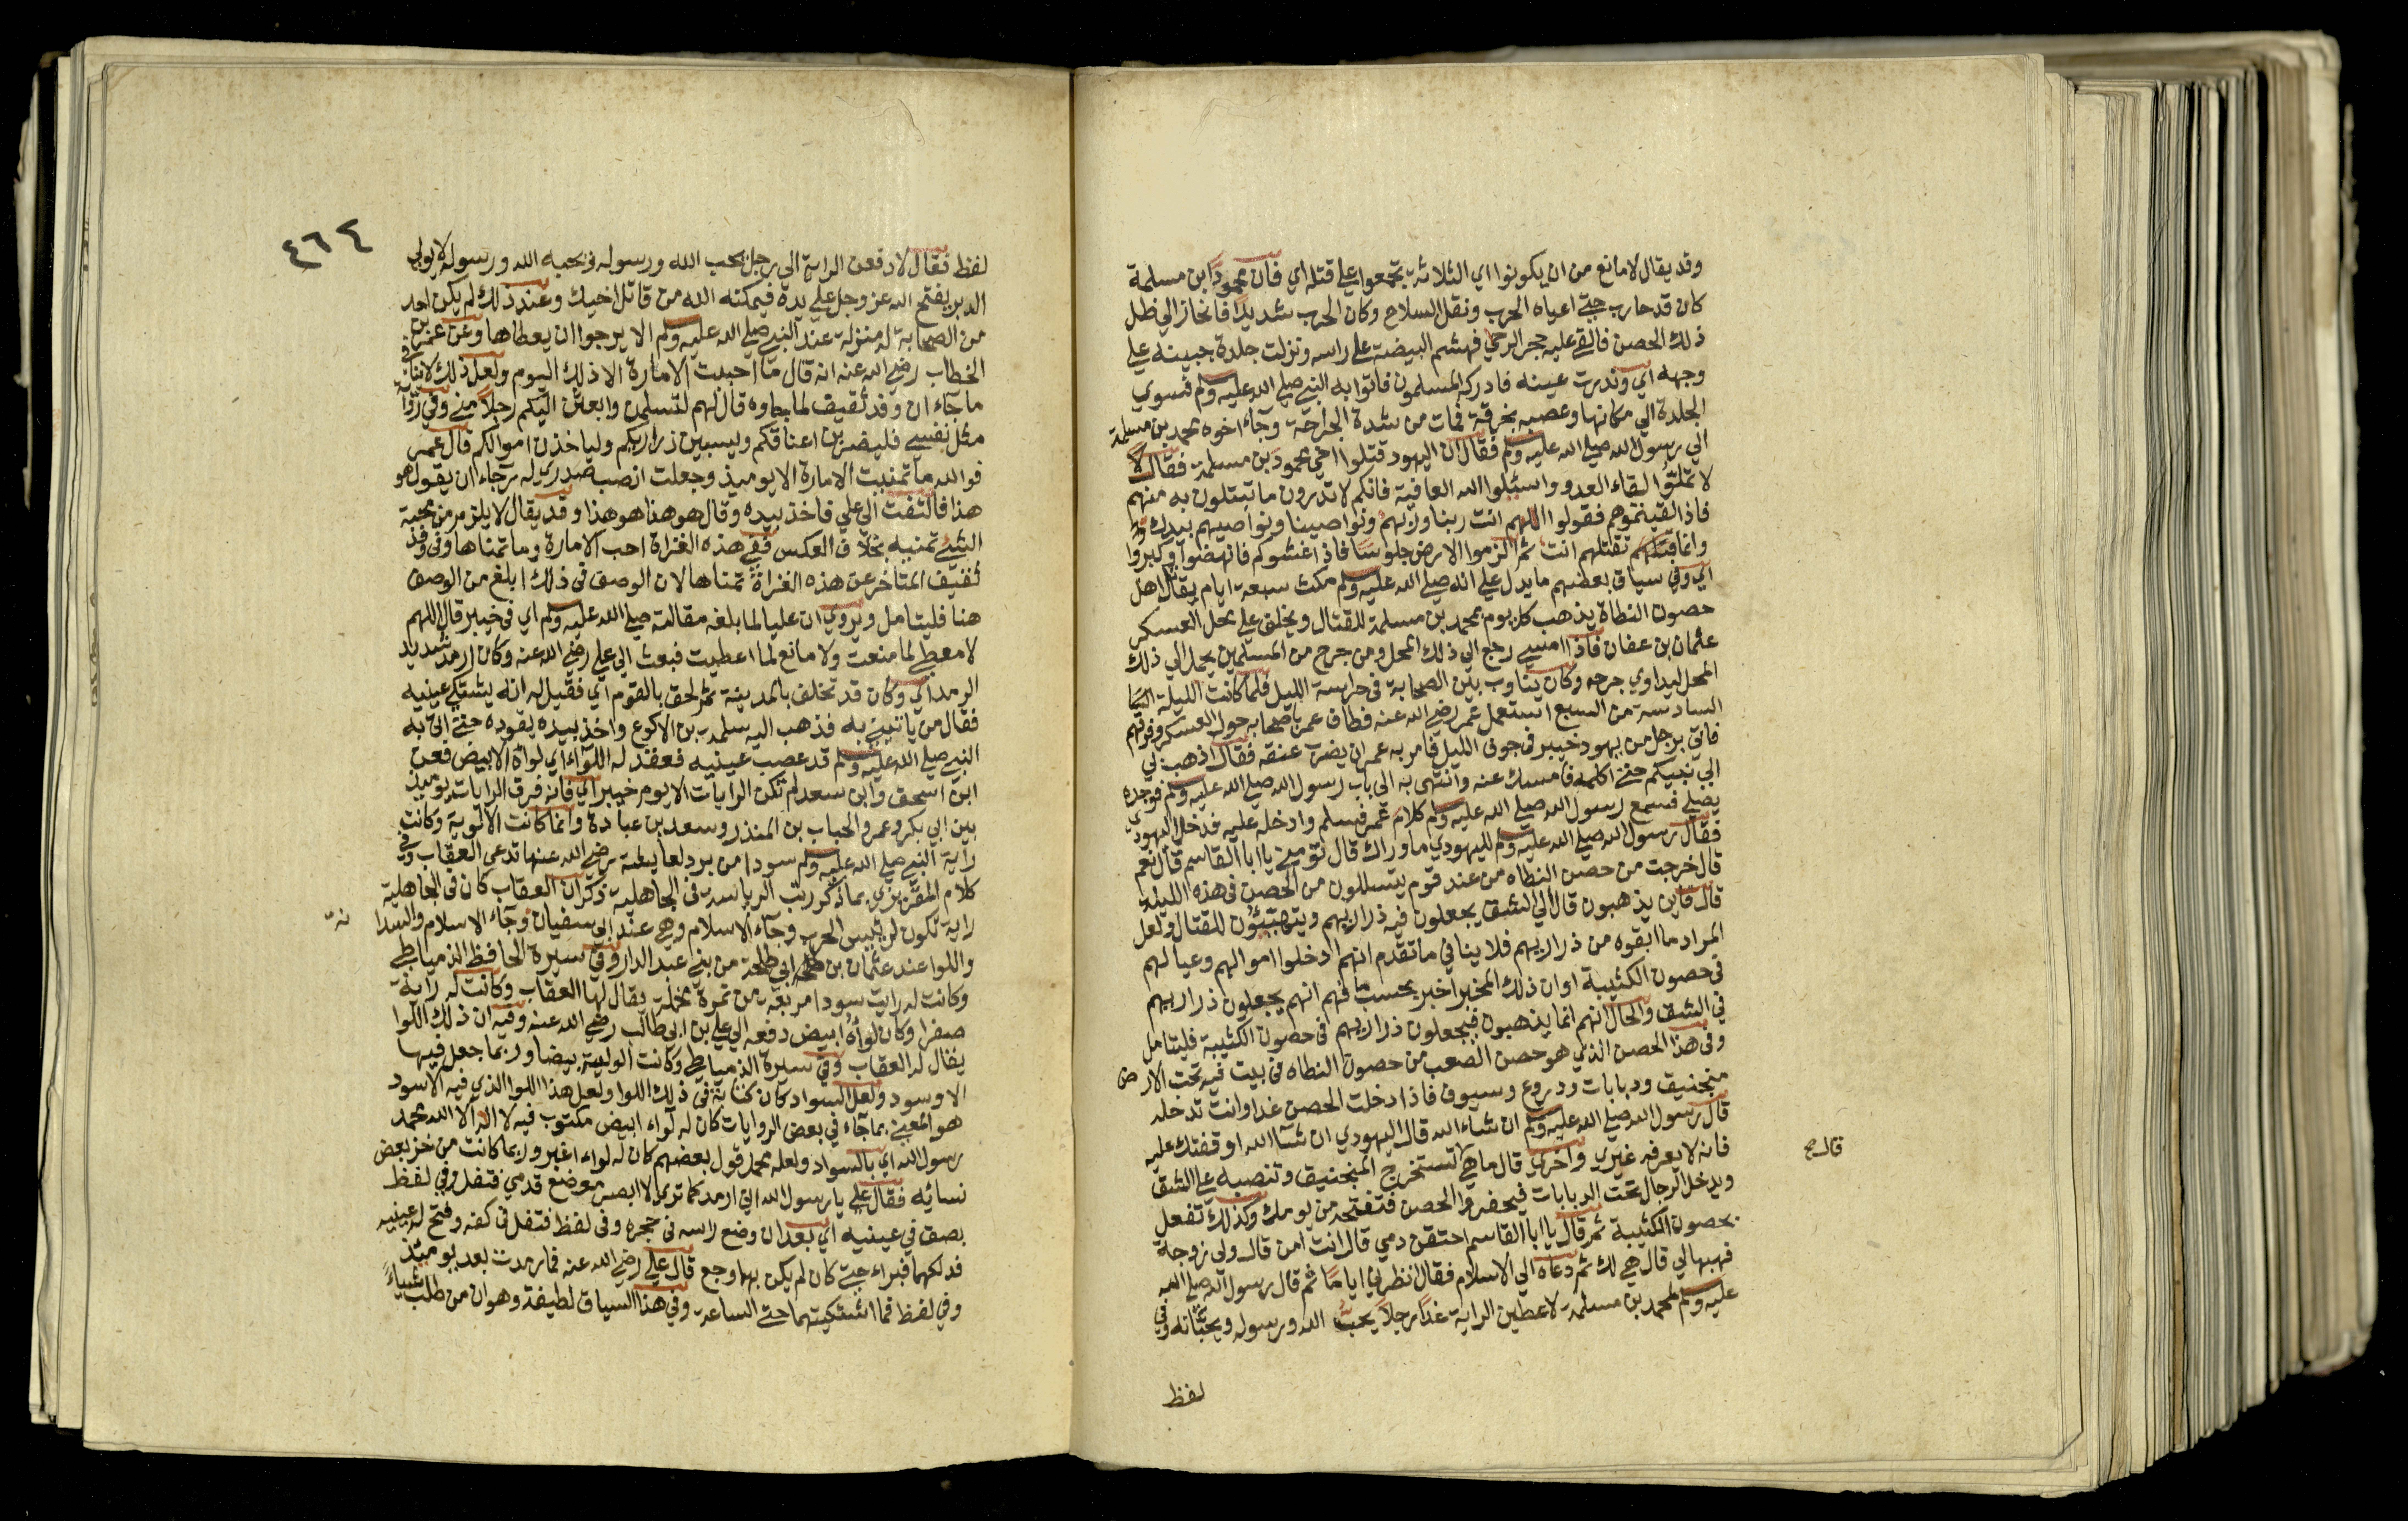 وقد يقال لا مانع من ان يكونوا اي الثلاثة تجمعوا على قتله اي فان محمودا ابن مسلمة
كان قد حارب حتى اعياه الحرب وثقل السلاح وكان الحرب شديدا فانحاز الي ظل
ذلك الحصن فالقي عليه حجر الرحي فهشم البيضة على راسه ونزلت جلدة جبينه علي
وجهه اي وندرت عينه فادركه المسلمون فاتوا به النبي صلي الله عليه وسلم فسوي
الجلدة الي مكانها وعصبه بخرقة فمات من شدة الجراحة وجاء اخوه محمد بن مسلمة
الي رسول الله صلي الله عليه وسلم فقال ان اليهود قتلوا اخي محمود بن مسلمة فقال لا
لا تمنوا لقاء العدو واسئلوا الله العافية فانكم لا تدرون ما تبتلون به منهم
فاذا لقيتموهم فقولوا اللهم انت ربنا وربهم ونواصينا ونواصيهم بيدك
وانما تقتلهم انت ثم الزموا الارض جلوسا فاذا غشوكم فانهضوا وكبروا
اي وفي سياق بعضهم ما يدل علي انه صلي الله عليه وسلم مكث سبعة ايام يقاتل اهل
حصون النطاة يذهب كل يوم بمحمد بن مسلمة للقتال ويخلف علي محل العسكر
عثمان بن عفان فاذا امسي رجع الي ذلك المحل ومن جرح من المسلمين يحمل الي ذلك
المحل ليداوي جرحه وكان يناوب بين الصحابة في حراسة الليل فلما كانت الليلة
السادسة من السبع استعمل عمر رضي الله عنه فطاف عمر باصحابه حول العسكر وفرقهم
فاتي برجل من يهود خيبر في جوف الليل فامر به عمر ان يضرب عنقه فقال اذهب بي
الي نبيكم حتى اكلمه فامسك عنه وانتهى به الي باب رسول الله صلي الله عليه وسلم فوجده
يصلي فسمع رسول الله صلي الله عليه وسلم كلام عمر فسلم وادخله عليه فدخل اليهودي
فقال رسول الله صلي الله عليه وسلم لليهودي ما وراك قال تؤمني يا ابا القاسم قال نعم
قال خرجت من حصن النطاه من عند قوم يتسللون من الحصن في هذه الليلة
قال فاين يذهبون قال الي الشق يجعلون فيه ذراريهم ويتهيئون للقتال ولعل
المراد ما ابقوه من ذراريهم فلا ينافي ما تقدم انهم ادخلوا اموالهم وعيالهم
في حصون الكثيبة او ان ذلك المخبر اخبر بحسب ما فهم انهم يجعلون ذراريهم
في الشق والحال انهم انما يذهبون فيجعلون ذراريهم في حصون الكثيبة فليتامل
وفي هذا الحصن الذي هو حصن الصعب من حصون النطاه في بيت فيه تحت الارض
منجنيق ودبابات ودروع وسيوف فاذا دخلت الحصن غدا وانت تدخله
قال رسول الله صلي الله عليه وسلم ان شاء الله قال اليهودي ان شاء الله اوقفتك عليه
فانه لا يعرفه غيري واخري قال ما هي قال تستخرج المنجنيق وتنصبه على الشق
ويدخل الرجال تحت الدبابات فيحفروا الحصن فتفتحه من يومك وكذلك تفعل
بحصون الكثيبة ثم قال يا ابا القاسم احتقن دمي قال انت امن قال ولي زوجة
فهبها لي قال هي لك ثم دعاه الي الاسلام فقال انظرني اياما ثم قال رسول الله صلي الله
عليه وسلم لمحمد بن مسلمة لاعطين الراية غدا رجلا يحب الله ورسوله ويحبانه وفي
لفظ
٤٦٤
لفظ فقال لادفعن الراية الي رجل يحب الله ورسوله ويحبه الله ورسوله لا يولي
الدبر يفتح الله عز وجل علي يده فيمكنه الله من قاتل اخيك وعند ذلك لم يكن احد
من الصحابة له منزلة عند النبي صلي الله عليه وسلم الا يرجوا ان يعطاها وعن عمر بن
الخطاب رضي الله عنه انه قال ما احببت الامارة الا ذلك اليوم ولعل ذلك لا ينافي
ما جاء ان وفد ثقيف لما جاوه قال لهم لتسلمن او ابعثن اليكم رجلا مني وفي رواية
مثل نفسي فليضربن اعناقكم وليسبين ذراريكم ولياخذن اموالكم قال عمر
فوالله ما تمنيت الامارة الا يوميذ وجعلت انصب صدري له رجاء ان يقول هو
هذا فالتفت الي علي فاخذ بيده وقال هو هذا هو هذا وقد يقال لا يلزم من محبة
الشئ تمنيه بخلاف العكس ففي هذه الغزاة احب الامارة وما تمناها وفي وفد
ثقيف المتاخر عن هذه الغزاة تمناها لان الوصف في ذلك ابلغ من الوصف
هنا فليتامل ويروي ان عليا لما بلغه مقالته صلي الله عليه وسلم اي في خيبر قال اللهم
لا معطي لما منعت ولا مانع لما اعطيت فبعث الي علي رضي الله عنه وكان ارمد شديد
الرمد اي وكان قد تخلف بالمدينة ثم لحق بالقوم اي فقيل له انه يشتكي عينيه
فقال من ياتيني به فذهب اليه سلمة بن الاكوع واخذ بيده يقوده حتى اتي به
النبي صلي الله عليه وسلم قد عصب عينيه فعقد له اللواء اي لواه الابيض فعن
ابن اسحق وابن سعد لم تكن الرايات الا يوم خيبر اي فانه فرق الرايات يوميذ
بين ابي بكر وعمر والحباب بن المنذر وسعد بن عبادة وانما كانت الالوية وكانت
راية النبي صلي الله عليه وسلم سودا من برد لعايشة رضي الله عنها تدعي العقاب وفي
كلام المقريزي بما ذكر رتب الرياسة في الجاهلية ذكر ان العقاب كان في الجاهلية
راية تكون لرئيس الحرب وجاء الاسلام وهي عند ابي سفيان وجاء الاسلام والسدا نة
واللوا عند عثمان بن ابي طلحة من بني عبد الدار وفي سيرة الحافظ الدمياطي
وكانت له راية سودا مربعة من نمرة مخملة يقال لها العقاب وكانت له راية
صفرا وكان لواه ابيض دفعه الي علي بن ابي طالب رضي الله عنه وفيه ان ذلك اللوا
يقال له العقاب وفي سيرة الدمياطي وكانت الوليته بيضا وربما جعل فيها
الا وسود ولعل السواد كان كتابة في ذلك اللوا ولعل هذا اللوا الذي فيه الاسود
هو المعني بما جاء في بعض الروايات كان له لواء ابيض مكتوب فيه لا اله الا الله محمد
رسول الله اي بالسواد ولعله محمل قول بعضهم كان له لواء اغبر وربما كانت من خز بعض
نسائه فقال علي يا رسول الله اني ارمد كما تري لا ابصر موضع قدمي فتفل وفي لفظ
بصق في عينيه اي بعد ان وضع راسه في حجره وفي لفظ فتفل في كفه وفتح له عينيه
فدلكهما فبراء حتى كان لم يكن بهما وجع قال علي رضي الله عنه فما رمدت بعد يوميذ
وفي لفظ فما اشتكيتهما حتى الساعة وفي هذا السياق لطيفة وهو ان من طلب شياء